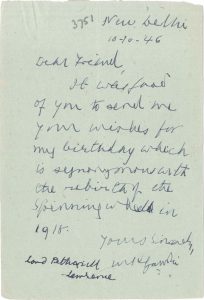 3751 New Delhi
10-10-46
Dear Friend
It was good
of you to send me
your wishes for
my birthday which
is synonymous with
the rebirth of the
spinning wheel in
1918.
Yours sincerely,
Lord Pethwick MKGandhi
Lawrence